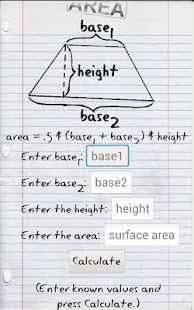 AREA
base1
height
base2
area = .5 * (base1 + base2) * height
Enter base1: base1
Enter base2: base2
Enter the height: height
Enter the area: surface area
Calculate
(Enter known values and
press Calculate.)